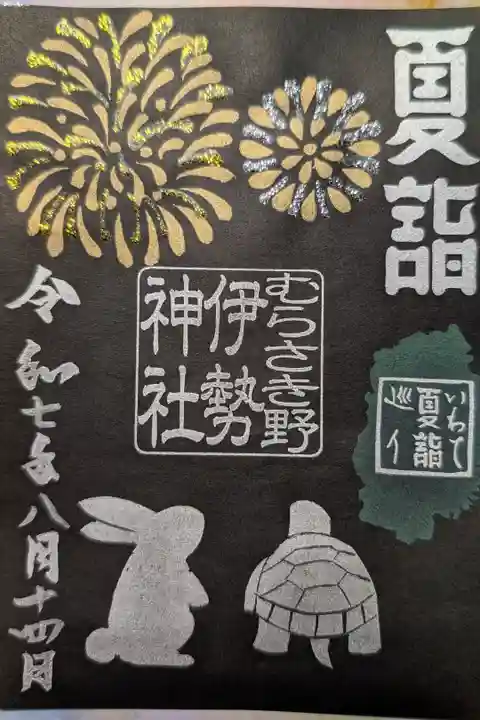 夏詣
むらさき野
伊勢
神社
いわて
夏詣
巡り
令和七年八月十四日